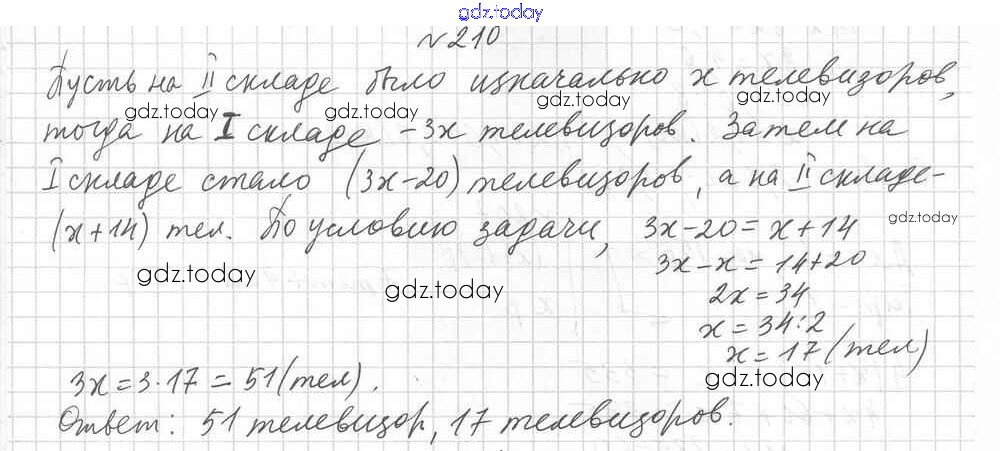 gdz.today
№210
Пусть на II складе было изначально x телевизоров,
gdz.today gdz.today gdz.today gdz.today
тогда на I складе - 3x телевизоров. Затем на
I складе стало (3x-20) телевизоров, а на II складе-
(x+14) тел. По условию задачи, 3x-20=x+14
gdz.today
3x-x=14+20
gdz.today gdz.today
2x=34
x=34:2
x=17 (тел)
3x=3·17=51(тел).
gdz.today
Ответ: 51 телевизор, 17 телевизоров.